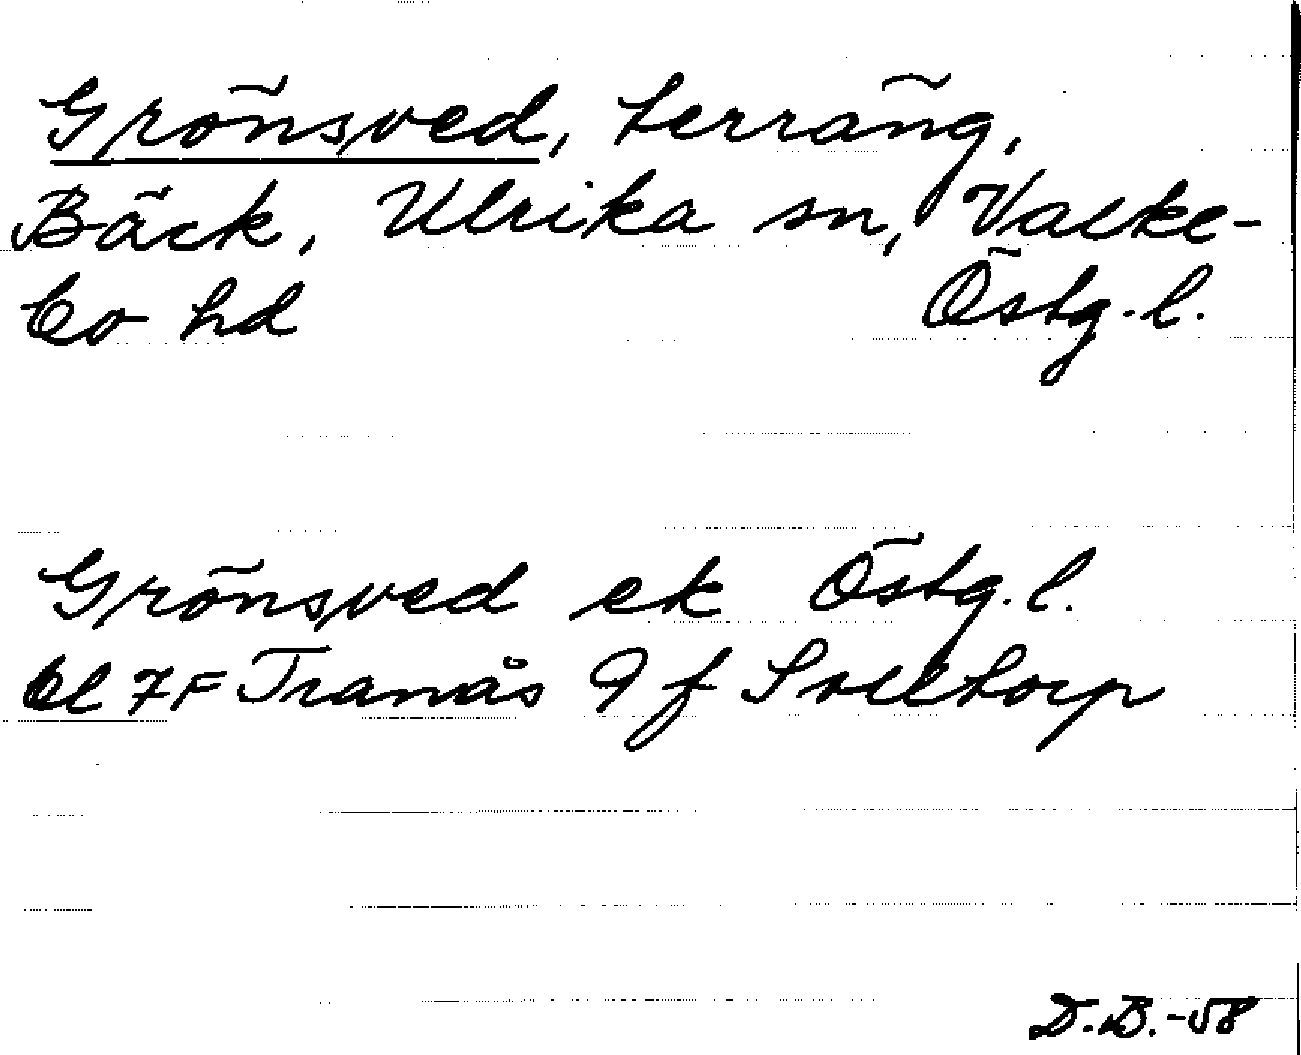 Grönsved, terräng,
Bäck, Ulrika sn, Valke-
bo hd Östg. l.
Grönsved ek Östg. l.
bl 7F Tranås 9 f Solltorp
D.B.-58